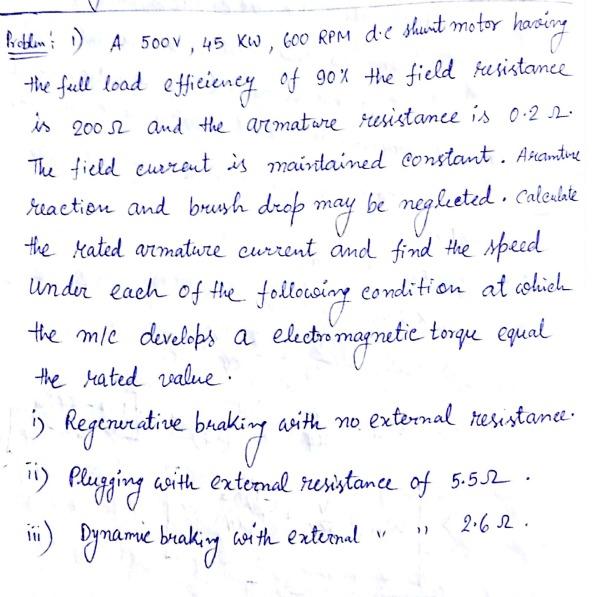 Problem: 1) A 500V, 45 KW, 600 RPM d.c shunt motor having
the full load efficiency of 90% the field resistance
is 200 Ω and the armature resistance is 0.2 Ω.
The field current is maintained constant. Aramture
reaction and brush drop may be neglected. Calculate
the rated armature current and find the speed
under each of the following condition at which
the m/c develops a electromagnetic torque equal
the rated value.
i) Regenerative braking with no external resistance.
ii) Plugging with external resistance of 5.5Ω.
iii) Dynamic braking with external " " 2.6 Ω.